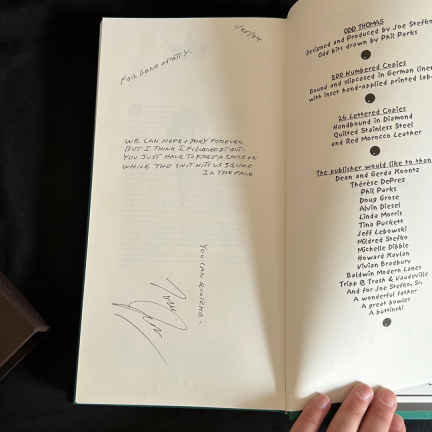 WE CAN HOPE + PRAY FOREVER
BUT I THINK I FIGURED IT OUT.
YOU JUST HAVE TO KEEP A SMILE ON
WHILE THE SHIT HITS US SQUARE
IN THE FACE
YOU CAN QUOTE ME.
ODD THOMAS
Designed and Produced by Joe Stefko
Odd bits drawn by Phil Parks
300 Numbered Copies
Bound and slipcased in German linen
with inset hand-applied printed
26 Lettered Copies
Handbound in Diamond
Quilted Stainless Steel
and Red Morocco Leather
The publisher would like to than
Dean and Gerda Koontz
Thérèse DePrez
Phil Parks
Doug Grose
Alvin Diesel
Linda Morris
Tina Puckett
Jeff Lebowski
Mildred Stefko
Michelle Dibble
Howard Kaylan
Vivian Bradbury
Baldwin Modern Lanes
Tripp @ Trash & Vaudeville
And for Joe Stefko, Sr.
A wonderful father
A great bowler
A buttinski